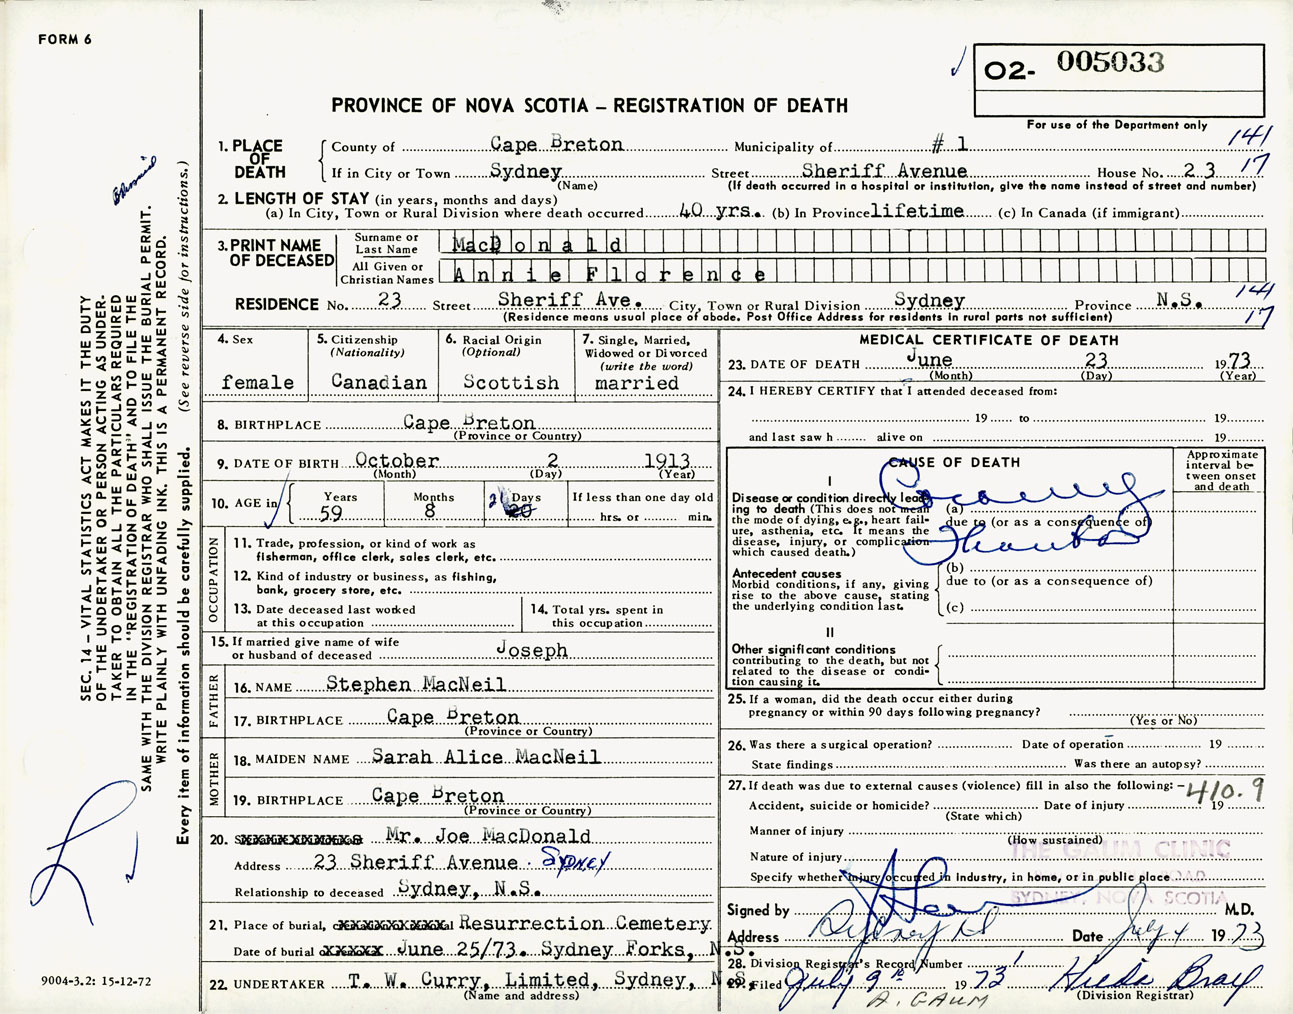 FORM 6
O2- 005033
PROVINCE OF NOVA SCOTIA – REGISTRATION OF DEATH
For use of the Department only
1. PLACE OF DEATH
County of Cape Breton Municipality of # 1 141
If in City or Town Sydney Street Sheriff Avenue House No. 23 17
(Name) (If death occurred in a hospital or institution, give the name instead of street and number)
2. LENGTH OF STAY (in years, months and days)
(a) In City, Town or Rural Division where death occurred 40 yrs. (b) In Province lifetime (c) In Canada (if immigrant)
3. PRINT NAME OF DECEASED
Surname or Last Name MacDonald
All Given or Christian Names Annie Florence
RESIDENCE No. 23 Street Sheriff Ave. City, Town or Rural Division Sydney Province N.S. 141
(Residence means usual place of abode. Post Office Address for residents in rural parts not sufficient) 17
4. Sex
female
5. Citizenship
(Nationality)
Canadian
6. Racial Origin
(Optional)
Scottish
7. Single, Married,
Widowed or Divorced
(write the word)
married
8. BIRTHPLACE Cape Breton
(Province or Country)
9. DATE OF BIRTH October 2 1913
(Month) (Day) (Year)
10. AGE in
Years Months Days If less than one day old
59 8 21 20 hrs. or min.
OCCUPATION
11. Trade, profession, or kind of work as
fisherman, office clerk, sales clerk, etc.
12. Kind of industry or business, as fishing,
bank, grocery store, etc.
13. Date deceased last worked
at this occupation
14. Total yrs. spent in
this occupation
15. If married give name of wife
or husband of deceased Joseph
FATHER
16. NAME Stephen MacNeil
17. BIRTHPLACE Cape Breton
(Province or Country)
MOTHER
18. MAIDEN NAME Sarah Alice MacNeil
19. BIRTHPLACE Cape Breton
(Province or Country)
20. Mr. Joe MacDonald
Address 23 Sheriff Avenue . SYDNEY
Relationship to deceased Sydney, N.S.
21. Place of burial, Resurrection Cemetery
Date of burial June 25/73. Sydney Forks, N.S.
22. UNDERTAKER T. W. Curry, Limited, Sydney, N.S.
(Name and address)
MEDICAL CERTIFICATE OF DEATH
23. DATE OF DEATH June 23 1973
(Month) (Day) (Year)
24. I HEREBY CERTIFY that I attended deceased from:
19 to 19
and last saw h alive on 19
CAUSE OF DEATH
Approximate
interval be-
tween onset
and death
I
Disease or condition directly lead-
ing to death (This does not mean
the mode of dying, e.g., heart fail-
ure, asthenia, etc. It means the
disease, injury, or complication
which caused death.)
(a) Coronary
due to (or as a consequence of)
Antecedent causes
Morbid conditions, if any, giving
rise to the above cause, stating
the underlying condition last.
(b)
due to (or as a consequence of)
(c)
II
Other significant conditions
contributing to the death, but not
related to the disease or condi-
tion causing it.
25. If a woman, did the death occur either during
pregnancy or within 90 days following pregnancy?
(Yes or No)
26. Was there a surgical operation? Date of operation 19
State findings Was there an autopsy?
27. If death was due to external causes (violence) fill in also the following: 410.9
Accident, suicide or homicide? Date of injury 19
(State which)
Manner of injury
(How sustained)
Nature of injury
THE GAUM CLINIC
ROAD
SYDNEY, NOVA SCOTIA
Specify whether injury occurred in Industry, in home, or in public place
Signed by M.D.
Address Sydney NS Date July 4 1973
28. Division Registrar's Record Number
29. Filed July 9th 1973 Hilda Bray
(Division Registrar)
A. GAUM
SEC. 14 – VITAL STATISTICS ACT MAKES IT THE DUTY
OF THE UNDERTAKER OR PERSON ACTING AS UNDER-
TAKER TO OBTAIN ALL THE PARTICULARS REQUIRED
IN THE "REGISTRATION OF DEATH" AND TO FILE THE
SAME WITH THE DIVISION REGISTRAR WHO SHALL ISSUE THE BURIAL PERMIT.
WRITE PLAINLY WITH UNFADING INK. THIS IS A PERMANENT RECORD.
Every item of information should be carefully supplied. (See reverse side for instructions.)
9004-3.2: 15-12-72